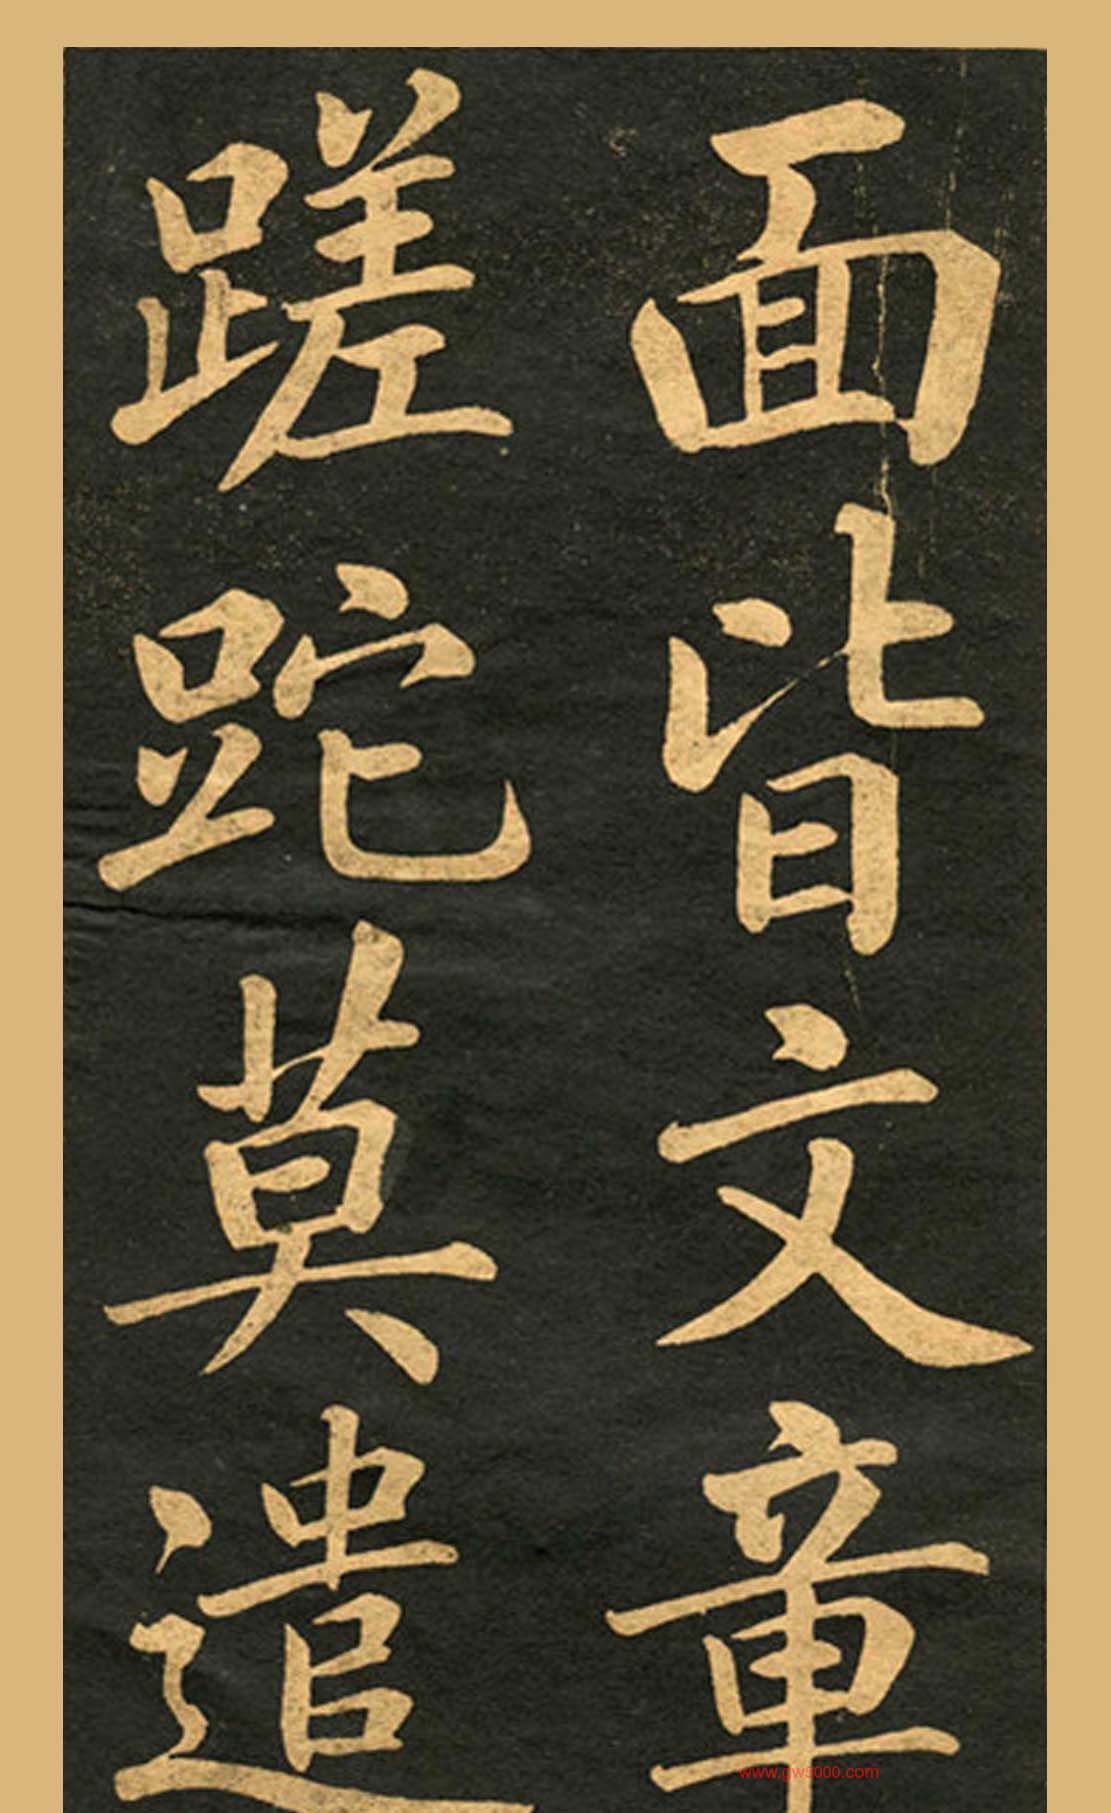 面皆文章
蹉跎莫遣
www.gw3000.com